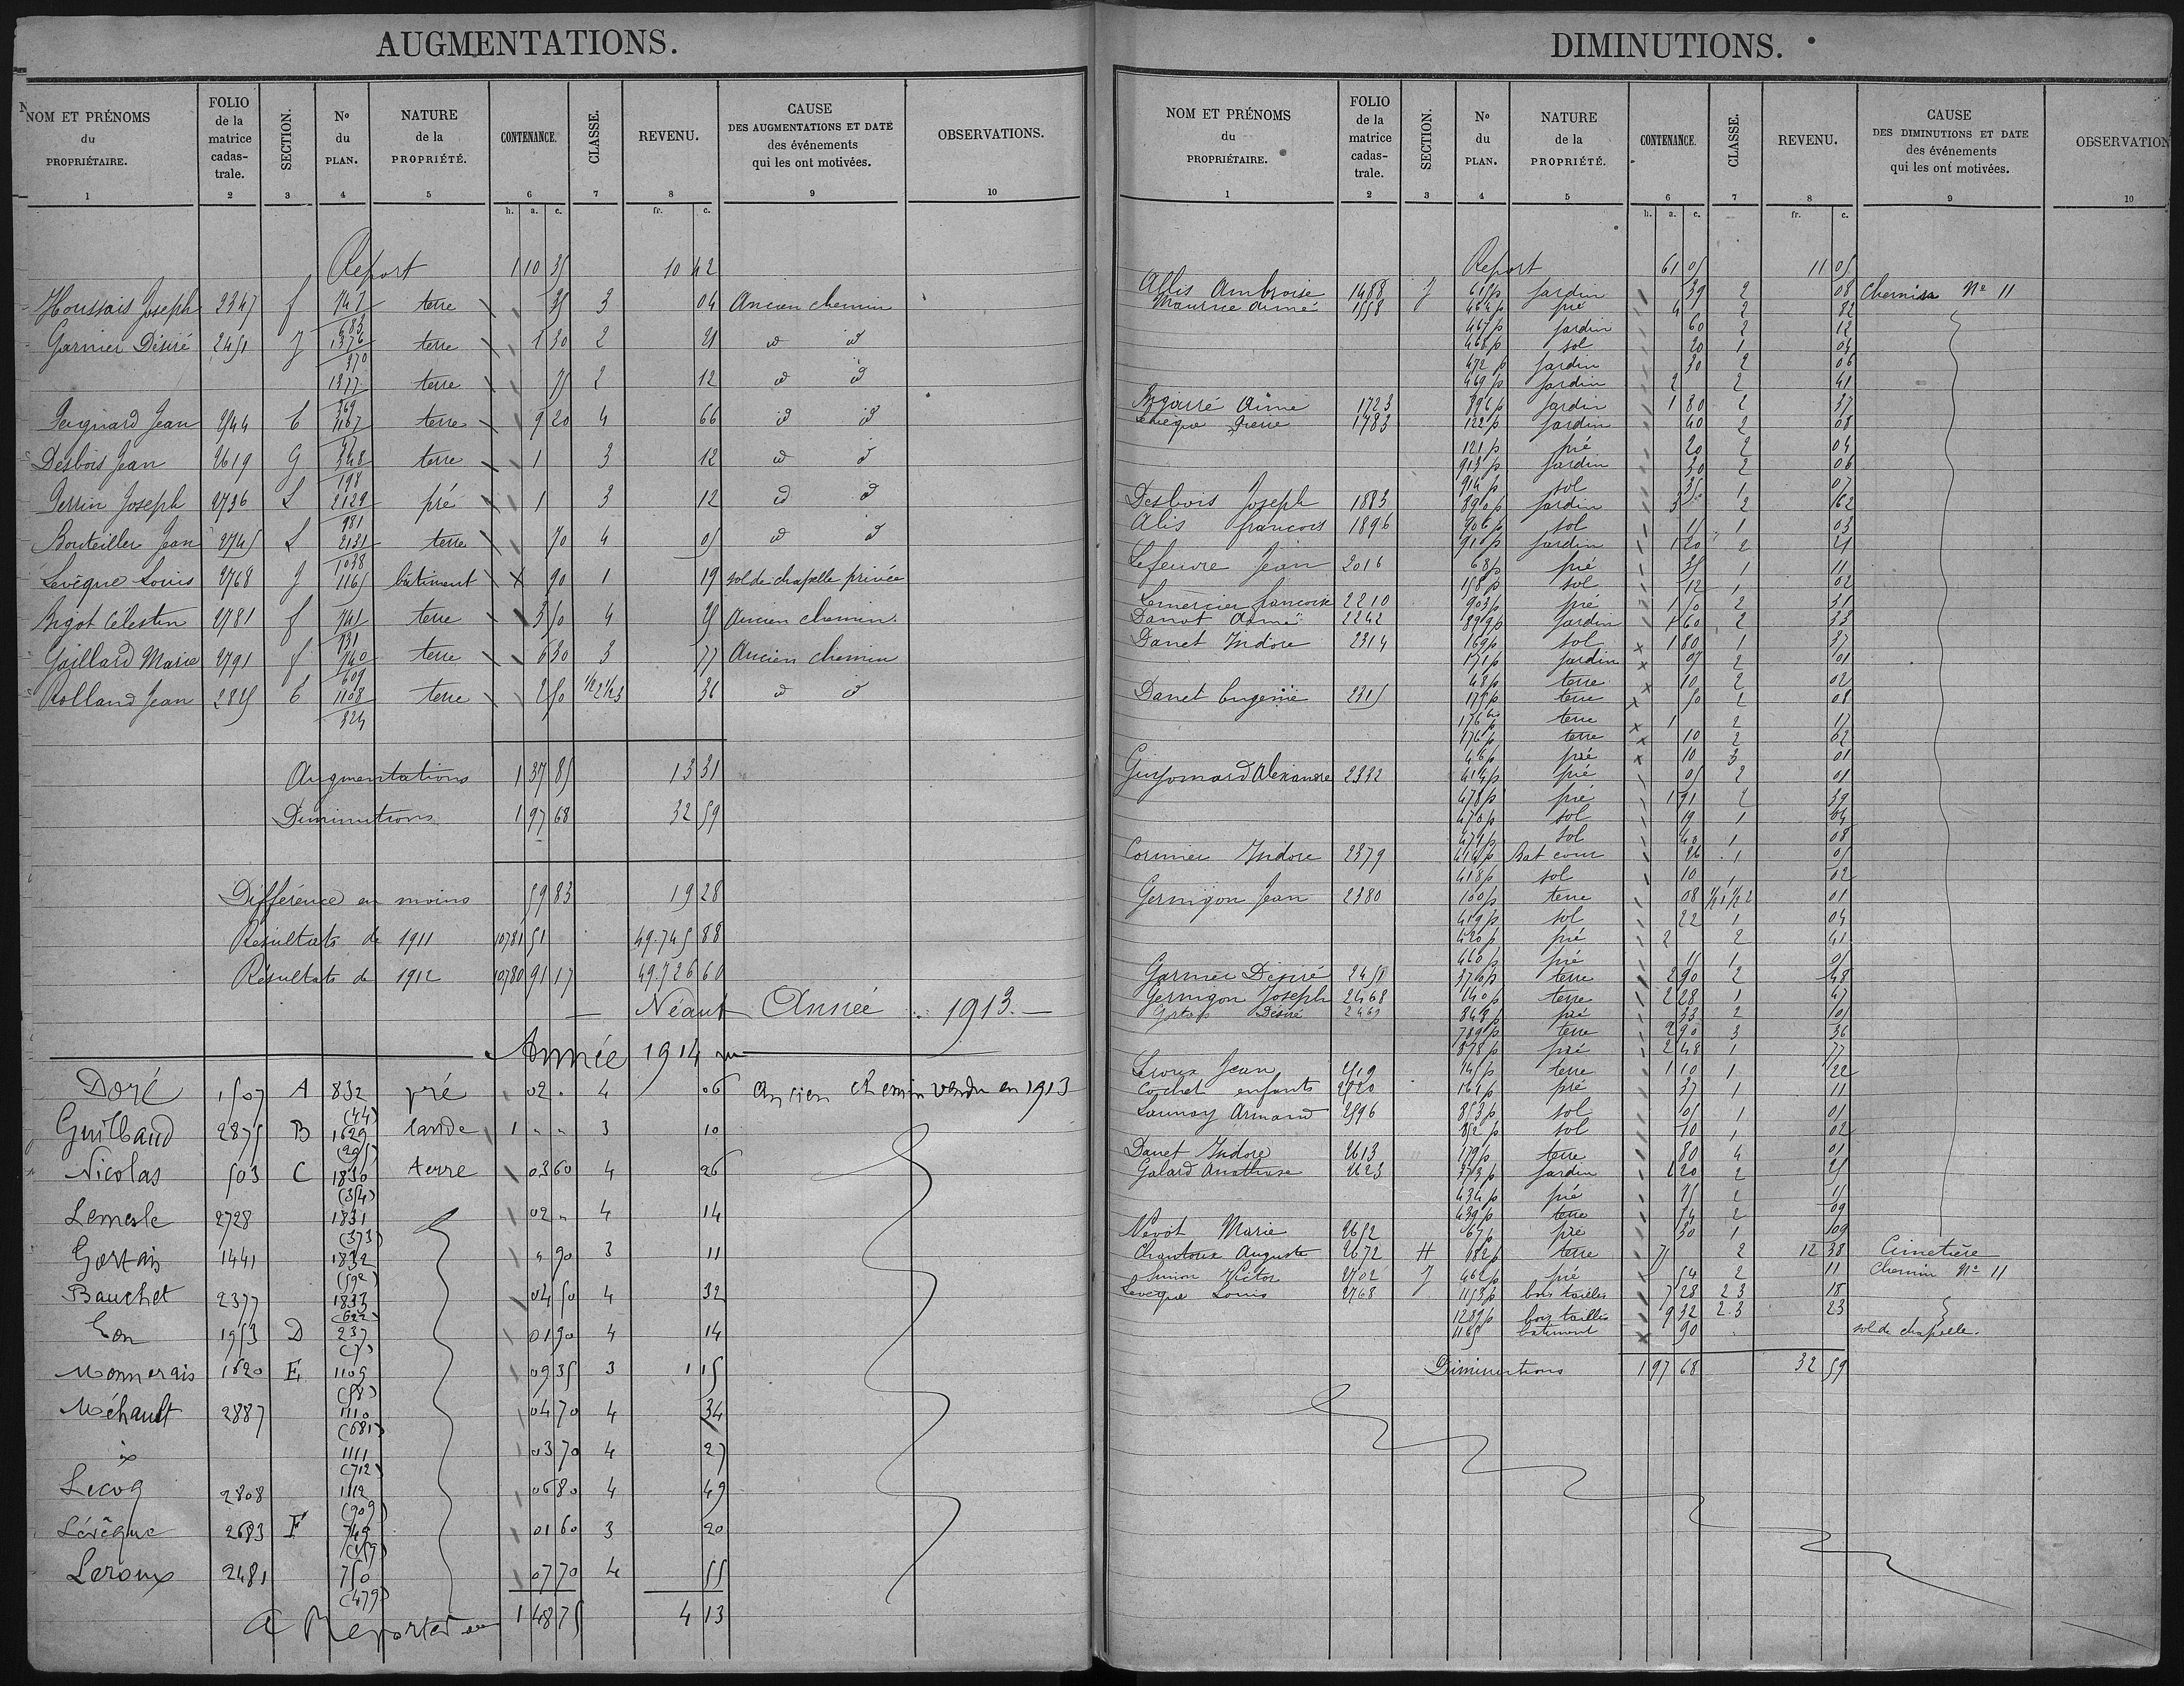 AUGMENTATIONS.
NOM ET PRÉNOMS du PROPRIÉTAIRE. 1
FOLIO de la matrice cadas-trale. 2
SECTION. 3
No du PLAN. 4
NATURE de la PROPRIÉTÉ. 5
CONTENANCE. 6
CLASSE. 7
REVENU. 8
CAUSE DES AUGMENTATIONS ET DATE des événements qui les ont motivées. 9
OBSERVATIONS. 10
h. a. c. fr. c.
Report 1 10 35 10 42
Houssais Joseph 2347 f 747 terre 35 3 04 Ancien chemin
683
Garnier Désiré 2451 J 1376 terre 1 30 2 21 id id
370
1377 terre 75 2 12 id id
369
Jean 2544 E 1167 terre 9 20 4 66 id id
47
Desbois Jean 2619 G 348 terre 1 3 12 id id
198
Perrin Joseph 2736 L 2129 pré 1 3 12 id id
981
Bouteiller Jean 2745 L 2131 terre 70 4 05 id id
1038
Levêque Louis 2768 J 1165 bâtiment 90 1 19 sol de chapelle privée
Bigot Célestin 2781 f 741 terre 3 50 4 25 Ancien chemin
731
Gaillard Marie 2791 f 740 terre 6 30 3 77 Ancien chemin
609
Rolland Jean 2825 E 1108 terre 2 50 1/2 2 1/2 3 36 id id
324
Augmentations 1 37 85 13 31
Diminutions 1 97 68 32 59
Différence en moins 59 83 19 28
Résultats de 1911 10781 51 49.745 88
Résultats de 1912 10780 91 17 49.726 60
Néant Année 1913.
Année 1914
Doré 1507 A 832 pré 02 4 06 Ancien chemin vendu en 1913
(44)
Guilbaud 2875 B 1629 lande 1 " " 3 10
(295)
Nicolas 503 C 1830 terre 03 60 4 26
(354)
Lemesle 2728 1831 02 " 4 14
(373)
Gortais 1441 1832 " 90 3 11
(592)
Bauchet 2377 1833 04 50 4 32
(622)
1953 D 237 01 90 4 14
(7)
Monnerais 1620 E 1109 09 35 3 1 15
(58)
Méhault 2887 1110 04 70 4 34
(681)
1111 03 70 4 27
(712)
Lecoq 2808 1112 06 80 4 49
(909)
Lévêque 2683 F 749 01 60 3 20
Leroux 2481 750 07 70 4 55
(479)
A Reporter 1 48 75 4 13
DIMINUTIONS.
NOM ET PRÉNOMS du PROPRIÉTAIRE. 1
FOLIO de la matrice cadas-trale. 2
SECTION. 3
No du PLAN. 4
NATURE de la PROPRIÉTÉ. 5
CONTENANCE. 6
CLASSE. 7
REVENU. 8
CAUSE DES DIMINUTIONS ET DATE des événements qui les ont motivées. 9
OBSERVATION 10
h. a. c. fr. c.
Report 61 05 11 05
Allis Ambroise 1488 J 615p jardin 39 2 08 Chemin No 11
Maurice Aimé 1558 464p pré 4 2 82
467p jardin 60 2 12
465p sol 20 1 04
472p jardin 30 2 06
469p jardin 2 2 41
Aimé 1723 896p jardin 1 80 2 37
Levêque Pierre 1783 122p jardin 40 2 08
121p pré 20 2 04
913p jardin 30 2 06
914p sol 35 1 07
Desbois Joseph 1883 890p jardin 3 2 62
Alis françois 1896 906p sol 15 1 03
910p jardin 1 20 2 21
Lefeuvre Jean 2016 68p pré 35 1 11
158p sol 12 1 02
Lemercier francoise 2210 903p pré 1 50 2 31
Danot Aimé 2242 899p jardin 1 60 2 33
Danet Isidore 2314 169p sol 1 80 1 37
171p jardin 07 2 01
43p terre 10 2 02
Danet Eugenie 2315 175p terre 50 2 08
176bis p terre 1 2 17
176p terre 10 2 02
46p pré 10 3 01
Guyomard Alexandre 2332 414p pré 05 2 01
478p pré 1 91 2 39
470p sol 19 1 04
471p sol 40 1 08
Cormier Isidore 2379 414p Bat cour 26 1 05
418p sol 10 1 02
Gernigon Jean 2380 100p terre 08 1/2 1 1/2 2 01
419p sol 22 1 04
420p pré 2 2 41
460p pré
Garnier Désiré 2451 370p terre 2 90 2 48
Gernigon Joseph 2468 140p terre 2 28 1 47
Désiré 2469 849p pré 33 2 10
789p terre 2 90 3 36
878p pré 2 48 1 77
Leroux Jean 2519 145p terre 1 10 1 22
Cochet enfants 2520 164p pré 37 1 11
Launay Armand 2596 853p sol 05 1 01
852p sol 10 1 02
Danet Isidore 2613 179p terre 80 4 01
Galard 2623 373p jardin 1 20 2 25
434p pré 75 2 15
439p terre 54 2 09
Nevot Marie 2652 67p pré 30 1 09
Chantoux Auguste 2672 H 182p terre 75 2 12 38 Cimetière
Simon Victor 2702 J 462p pré 54 2 11 Chemin No 11
Levêque Louis 2768 1153p bois taillis 7 28 2 3 18
1289p bois taillis 9 32 2.3 23
1165 batiment 90 sol de chapelle.
Diminutions 1 97 68 32 59